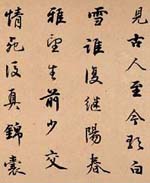 見古人至今白
雪誰復繼陽春
雅望生前少交
情死後真錦